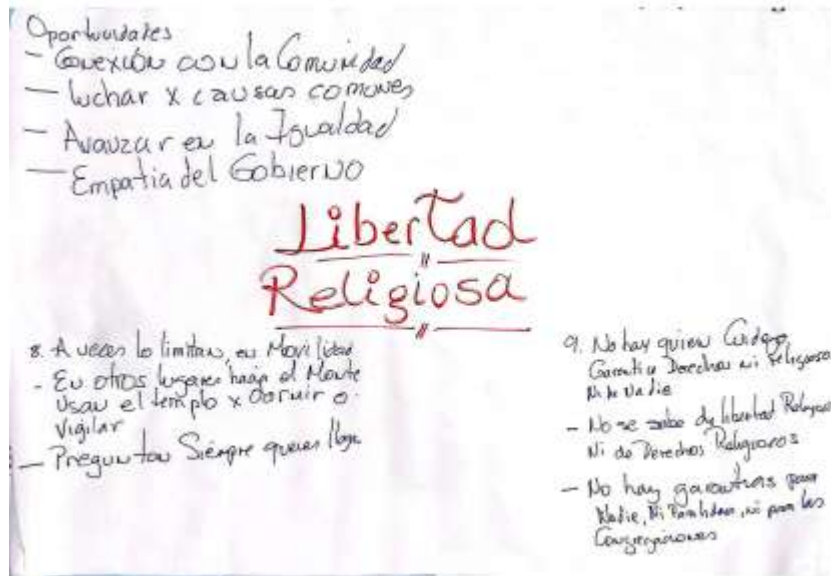 Oportunidades
- Conexión con la Comunidad
- Luchar x causas comunes
- Avanzar en la Igualdad
- Empatia del Gobierno
Libertad
Religiosa
8. A veces lo limitan, en Movilidad
- En otros lugares hacia el Monte
Usan el templo x Dormir o
Vigilar
- Preguntan Siempre quien llega
9. No hay quien Cuide o
Garantice Derechos ni religiosos
Ni de Nadie
- No se sabe de libertad Religiosa
Ni de Derechos Religiosos
- No hay garantias para
Nadie, Ni, ni para las
Congregaciones